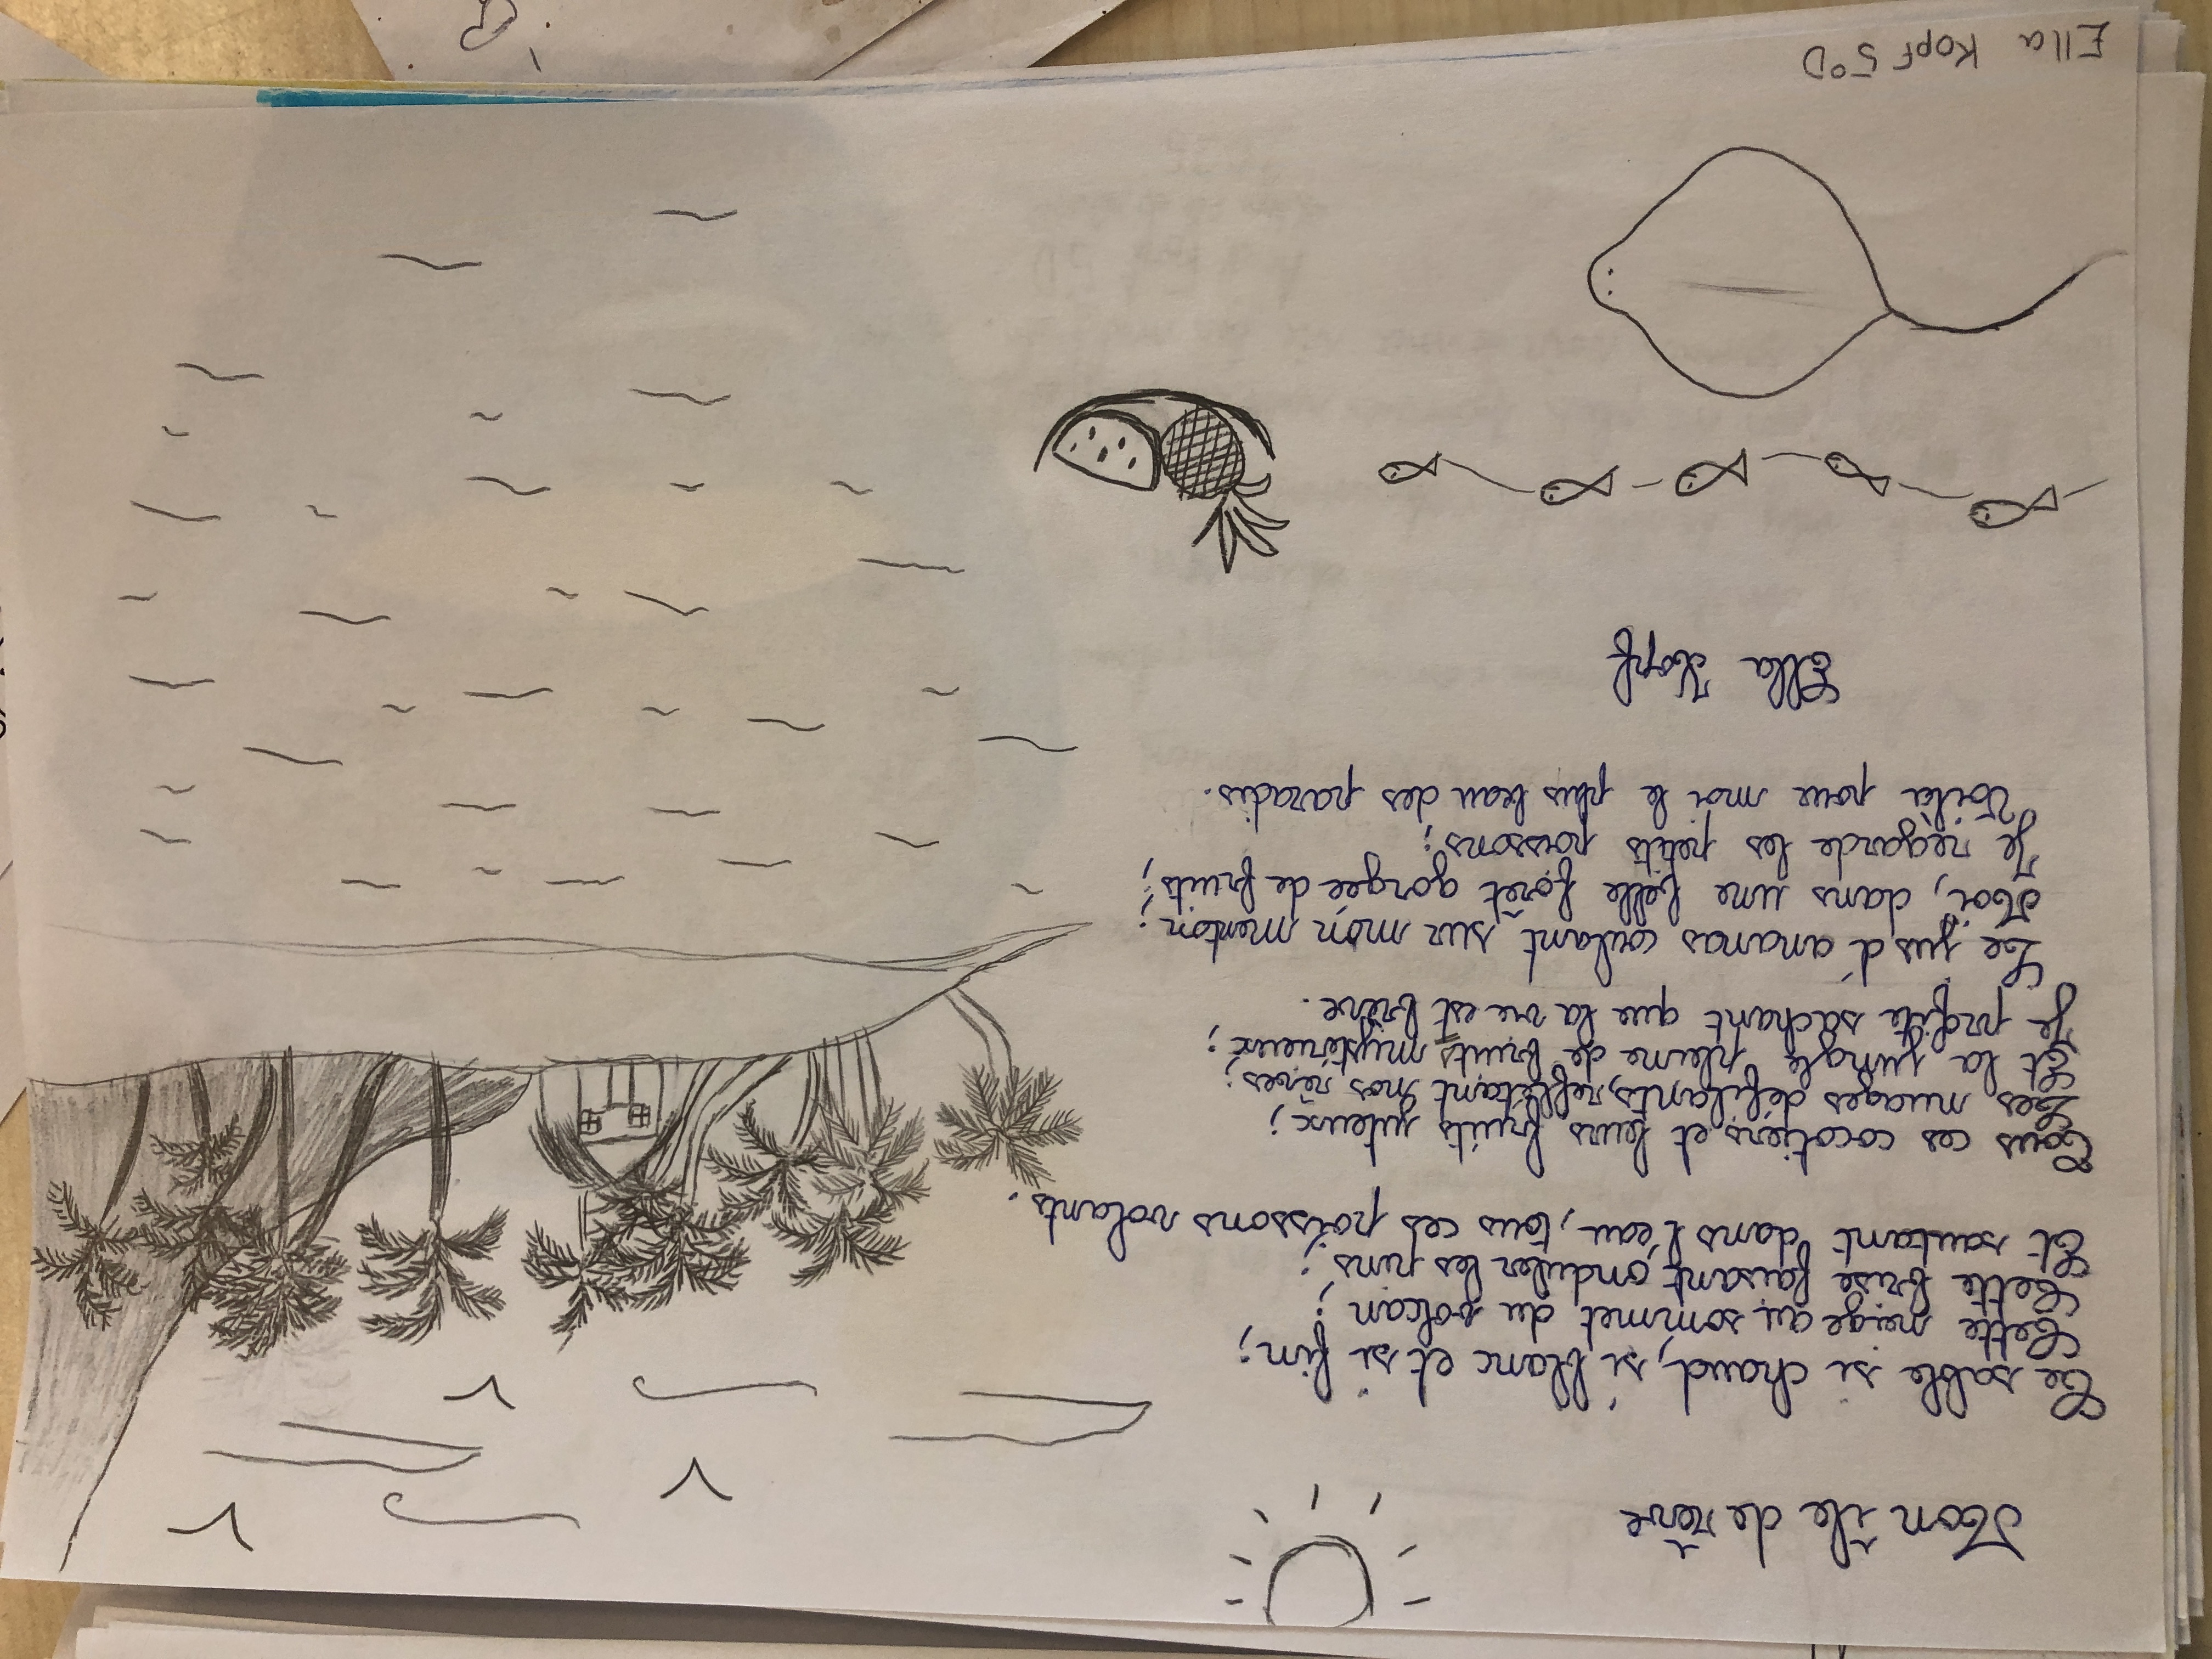 Mon île de rêve
Ce sable si chaud, si blanc et si fin ;
Cette neige au sommet du volcan ;
Cette brise faisant onduler les pins ;
Et sautant dans l'eau, tous ces poissons volants.
Tous ces cocotiers et leurs fruits juteux ;
Les nuages défilants, reflétant mes rêves ;
Et la jungle pleine de bruits mystérieux ;
Je profite sachant que la vie est brève.
Le jus d'ananas coulant sur mon menton ;
Moi, dans une belle forêt gorgée de fruits ;
Je regarde les petits poissons ;
Voilà pour moi le plus beau des paradis.
Ella Kopf
Ella Kopf 5°D